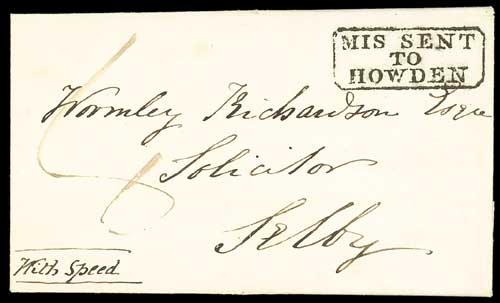 MIS SENT
TO
HOWDEN
Wormley Richardson Esqre
Solicitor
Selby
With Speed